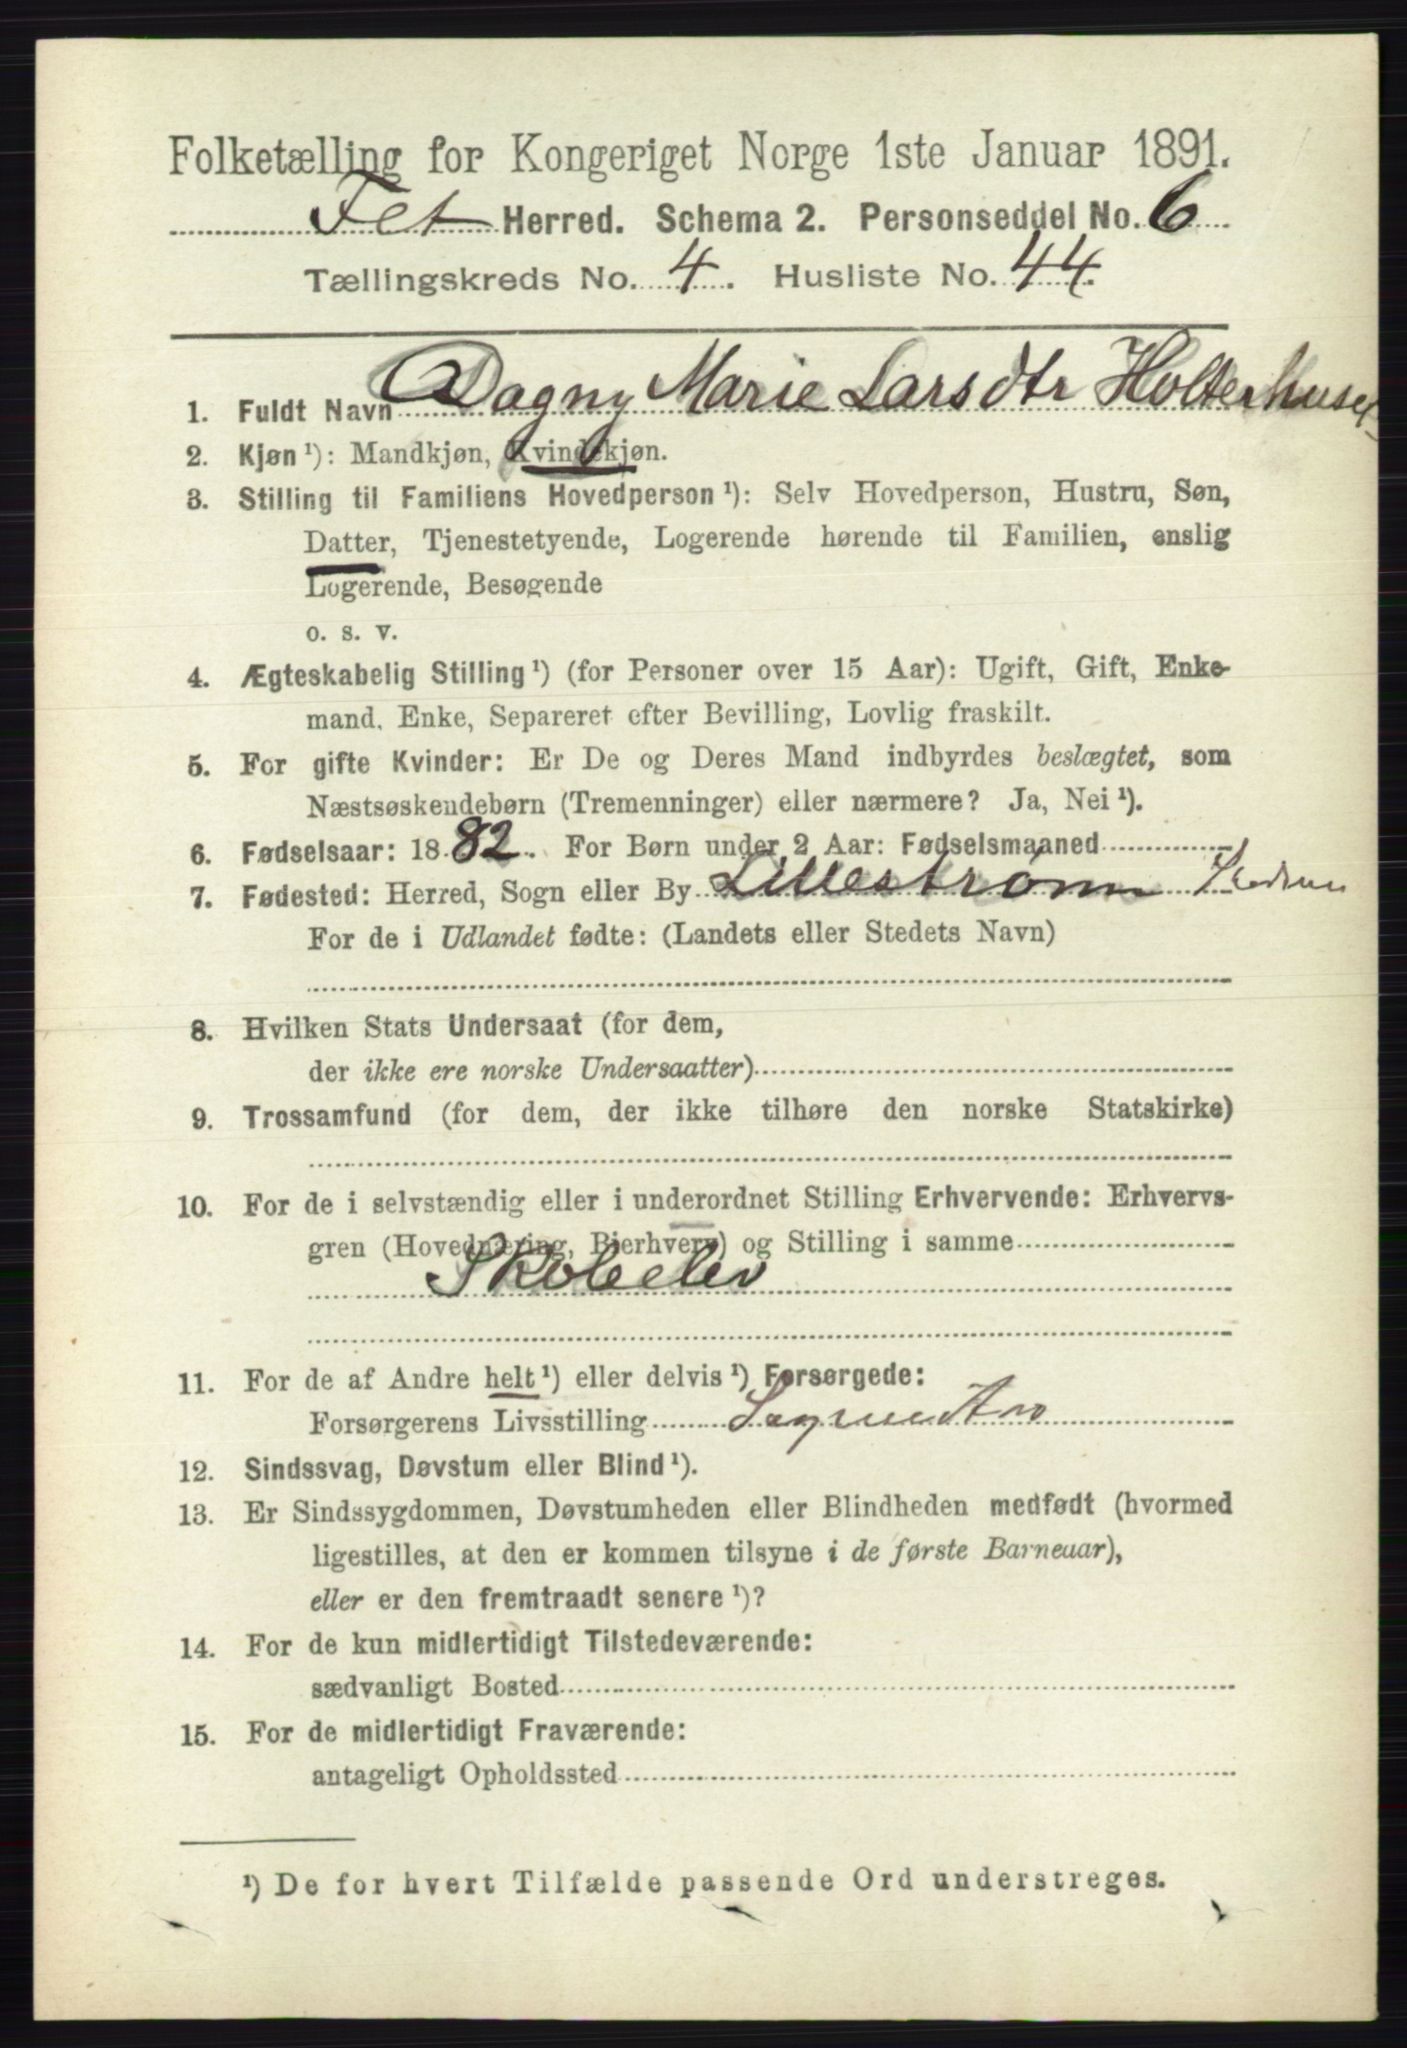 Folketælling for Kongeriget Norge 1ste Januar 1891.
Fet Herred. Schema 2. Personseddel No. 6
Tællingskreds No. 4. Husliste No. 44.
1. Fuldt Navn Dagny Marie Larsdtr Holterhuset
2. Kjøn ¹): Mandkjøn, Kvindekjøn.
3. Stilling til Familiens Hovedperson ¹): Selv Hovedperson, Hustru, Søn,
Datter, Tjenestetyende, Logerende hørende til Familien, enslig
Logerende, Besøgende
o. s. v.
4. Ægteskabelig Stilling ¹) (for Personer over 15 Aar): Ugift, Gift, Enke-
mand, Enke, Separeret efter Bevilling, Lovlig fraskilt.
5. For gifte Kvinder: Er De og Deres Mand indbyrdes beslægtet, som
Næstsøskendebørn (Tremenninger) eller nærmere? Ja, Nei ¹).
6. Fødselsaar: 1882. For Børn under 2 Aar: Fødselsmaaned
7. Fødested: Herred, Sogn eller By Lillestrøm
For de i Udlandet fødte: (Landets eller Stedets Navn)
8. Hvilken Stats Undersaat (for dem,
der ikke ere norske Undersaatter)
9. Trossamfund (for dem, der ikke tilhøre den norske Statskirke)
10. For de i selvstændig eller i underordnet Stilling Erhvervende: Erhvervs-
gren (Hovednæring, Bierhverv) og Stilling i samme
Skoleelev
11. For de af Andre helt ¹) eller delvis ¹) Forsørgede:
Forsørgerens Livsstilling
12. Sindssvag, Døvstum eller Blind ¹).
13. Er Sindssygdommen, Døvstumheden eller Blindheden medfødt (hvormed
ligestilles, at den er kommen tilsyne i de første Barneaar),
eller er den fremtraadt senere ¹)?
14. For de kun midlertidigt Tilstedeværende:
sædvanligt Bosted
15. For de midlertidigt Fraværende:
antageligt Opholdssted
¹) De for hvert Tilfælde passende Ord understreges.